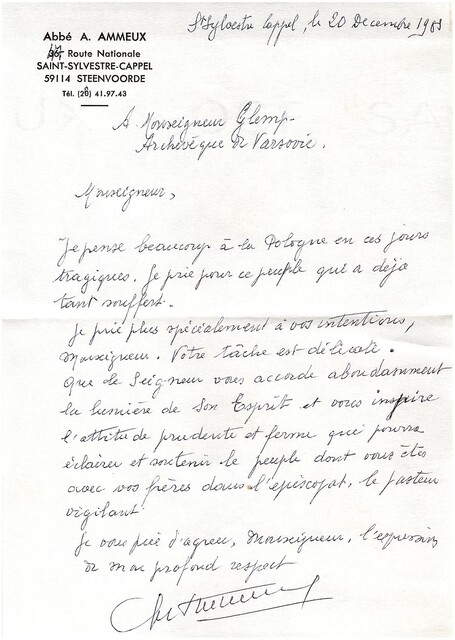 Abbé A. AMMEUX
47, Route Nationale
SAINT-SYLVESTRE-CAPPEL
59114 STEENVOORDE
Tél. (28) 41.97.43
St Sylvestre Cappel, le 20 Decembre 1981
A Monseigneur Glemp-
Archevêque de Varsovie.
Monseigneur,
Je pense beaucoup à la Pologne en ces jours
tragiques. Je prie pour ce peuple qui a déjà
tant souffert.
Je prie plus spécialement à vos intentions,
Monseigneur. Votre tâche est délicate.
Que le Seigneur vous accorde abondamment
la lumière de Son Esprit et vous inspire
l'attitude prudente et ferme qui pourra
éclairer et soutenir le peuple dont vous êtes
avec vos frères dans l'épiscopat, le pasteur
vigilant.
Je vous prie d'agréer, Monseigneur, l'expression
de mon profond respect